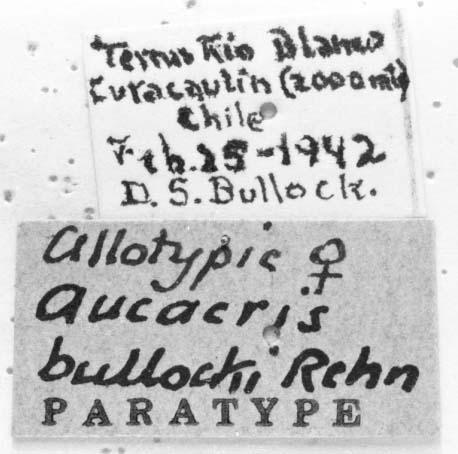 Termas Rio Blanco
Curacautin (2000 mts)
Chile
Feb. 25-1942
D. S. Bullock.
Allotypic ♀
Aucacris
bullocki Rehn
PARATYPE